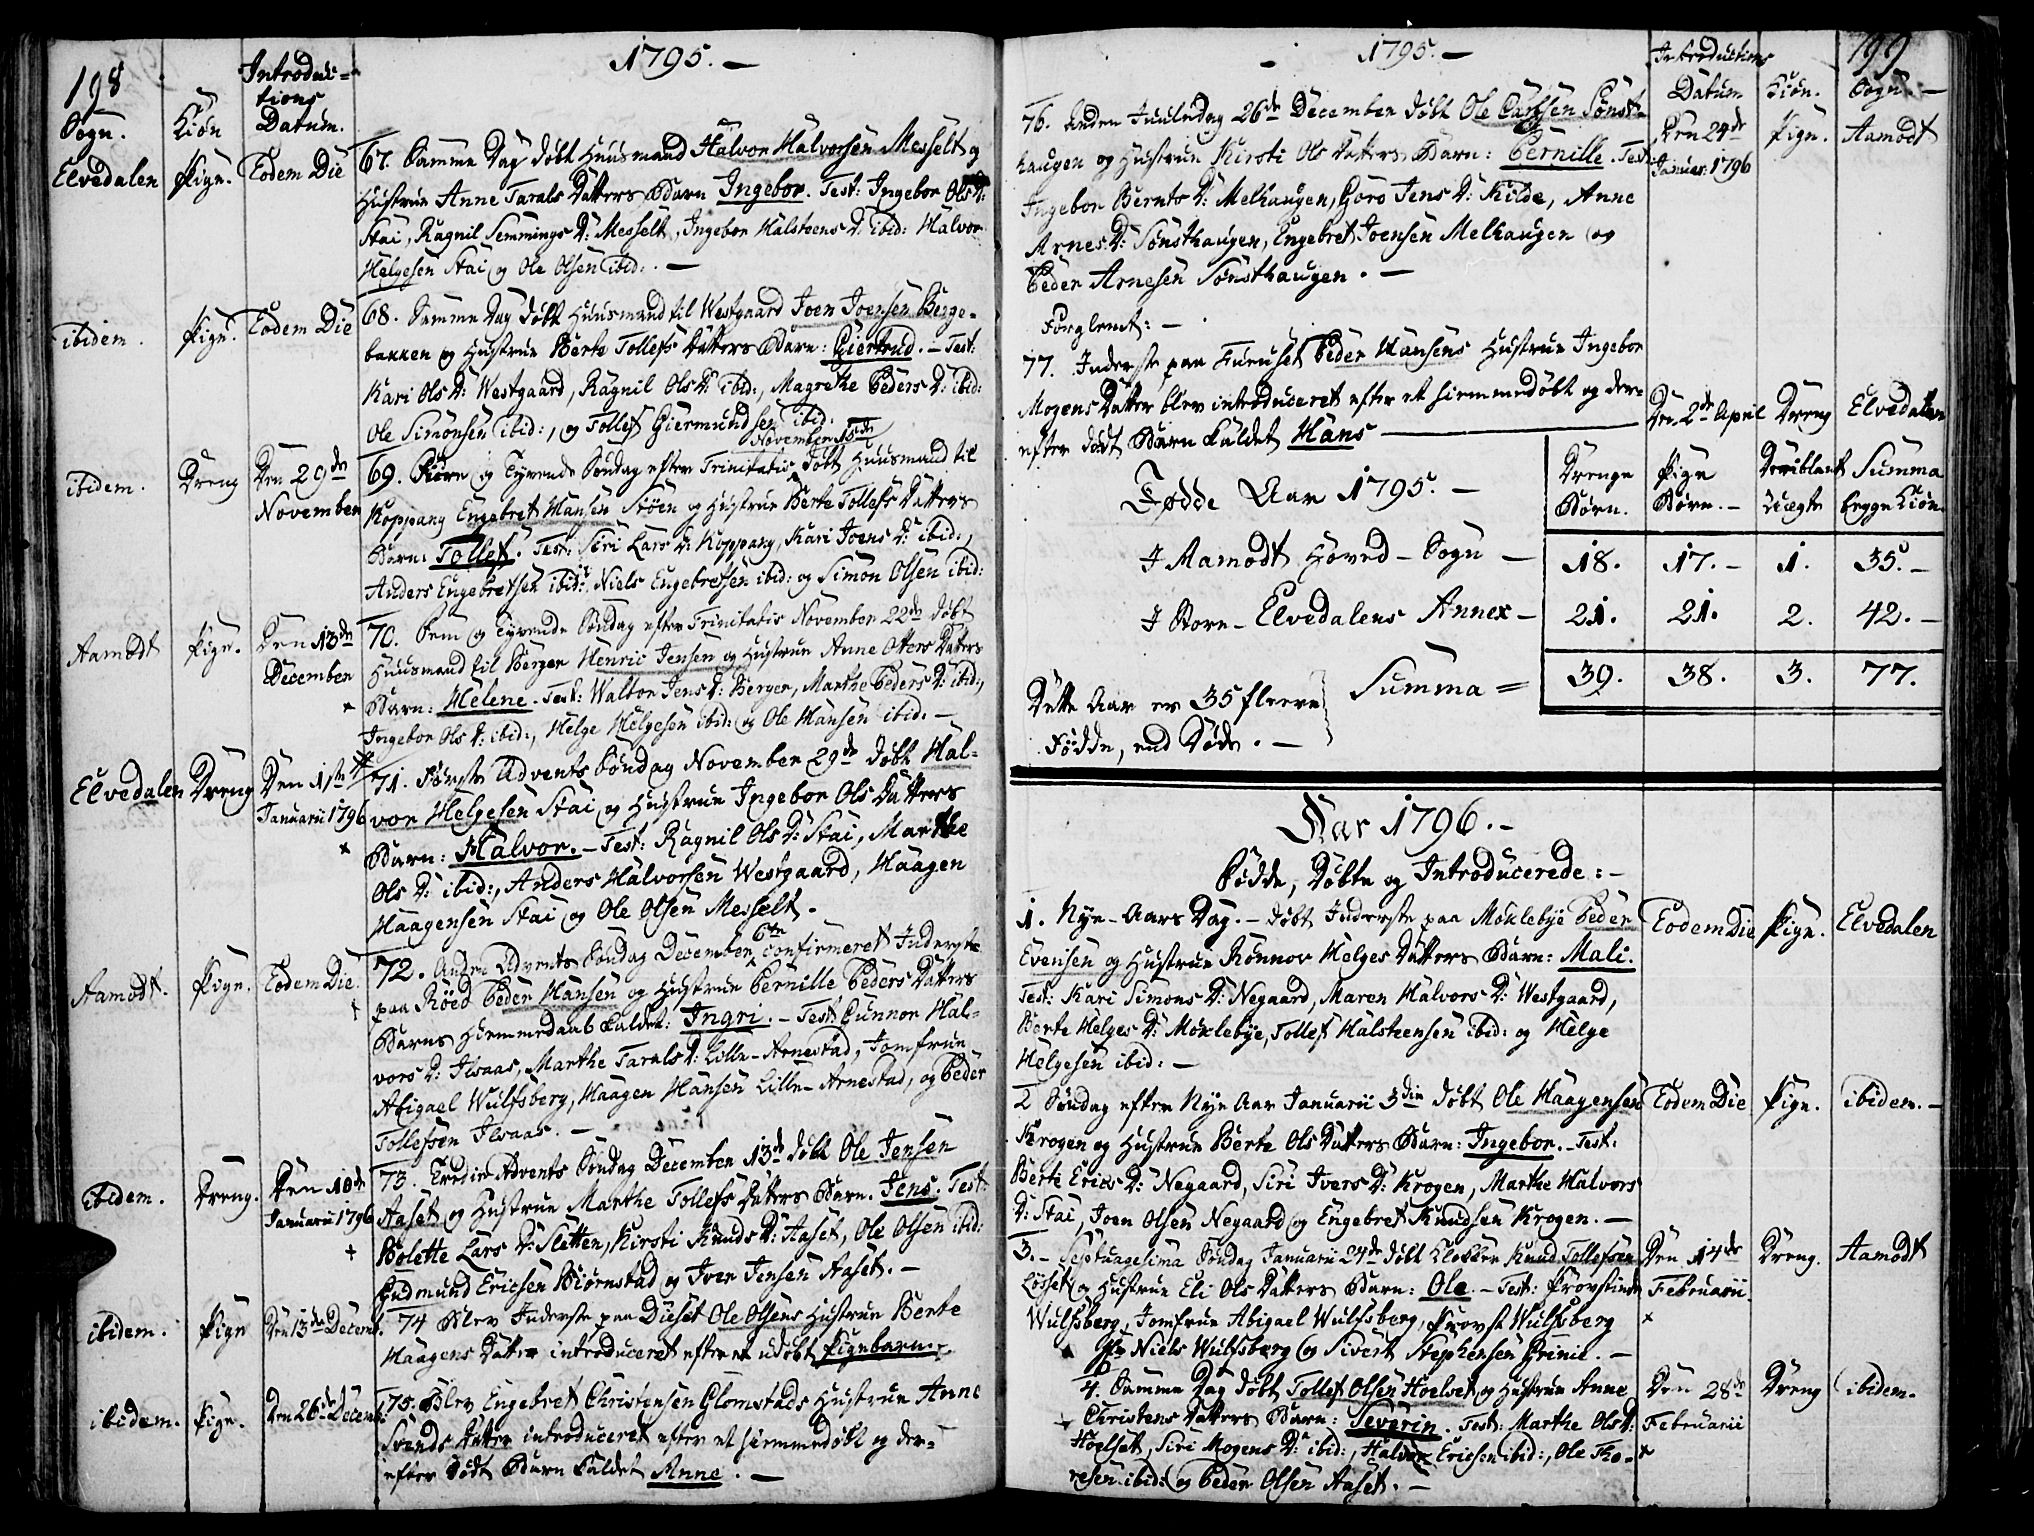 198
Sogn.
Kiön
Introduc-
tions
Datum.
1795. —
Elvedalen Pige. Eodem Die
67. Samme Dag døbt Huusmand Halvor Halvorsen Messelt og
Hustrue Anne Tarals Datters Barn Ingebor. Test: Ingebor Ols D:
Stai, Ragnil Semmings D: Messelt, Ingebor Halsteens D: ibid: Halvor
Helgesen Stai og Ole Olsen ibid: . —
ibidem. Pige. Eodem Die
68. Samme Dag døbt Huusmand til Westgaard Joen Joensen Berge-
bakken og Hustrue Berte Tollefs Datters Barn: Giertrud. — Test:
Kari Ols D: Westgaard, Ragnil Ols D: ibid:, Magrethe Peders D: ibid:
Ole Simonsen ibid:, og Tollef Giermundsen ibid:
ibidem. Dreng Den 29de November
November 15de
69. Fiire og Tyvende Søndag efter Trinitatis døbt Huusmand til
Koppang Engebret Hansen Støen og Hustrue Berte Tollefs Datters
Barn: Tollef. Test: Siri Lars D: Koppang, Kari Joens D: ibid:,
Anders Engebretsen ibid:, Niels Engebretsen ibid: og Simon Olsen ibid:
Aamodt Pige. Den 13de December
70. Fem og Tyvende Søndag efter Trinitatis November 22de døbt
Huusmand til Berger Henric Jensen og Hustrue Anne Otters Datters
Barn: Helene. Test: Walbor Jens D: Berger, Marthe Peders D: ibid:,
Ingebor Ols D: ibid:, Helge Helgesen ibid: og Ole Hansen ibid: —
Elvedalen Dreng Den 1ste Januarii 1796
71. Første Advents Søndag November 29de døbt Hal-
vor Helgesen Stai og Hustrue Ingebor Ols Datters
Barn: Halvor. — Test: Ragnil Ols D: Stai, Marthe
Ols D: ibid:, Anders Halvorsen Westgaard, Haagen
Haagensen Stai og Ole Olsen Messelt.
Aamodt. Pige. Eodem Die.
72. Anden Advents Søndag December 6te confirmeret Inderste
paa Røed Peder Hansen og Hustrue Pernille Peders Datters
Barns Hiemmedaab kaldet: Ingri. — Test: Gunnor Hal-
vors D: Ilvaas, Marthe Tarals D: Lille-Arnestad, Jomfrue
Abigael Wulfsberg, Haagen Hansen Lille-Arnestad, og Peder
Tollefsen Ilvaas. —
ibidem. Dreng. Den 10de Januarii 1796
73. Tredie Advents Søndag December 13de døbt Ole Jensen
Aaset og Hustrue Marthe Tollefs Datters Barn. Jens. Test:
Bolette Lars D: Sletten, Kirsti Knuds D: Aaset, Ole Olsen ibid:
Gudmund Ericsen Biørnstad og Iver Jensen Aaset. —
ibidem. Pige Den 13de Decemb.
74 Blev Inderste paa Dieset Ole Olsens Hustrue Berte
Haagens Datter introduceret efter et udøbt Pigebarn.
ibidem. Pige. Den 26de Decemb:
75. Blev Engebret Christensen Glomstads Hustrue Anne
Svends Datter introduceret efter et hiemmedøbt og der-
efter dødt Barn kaldet Anne. —
1795. —
Introductions
Datum
Kiön.
199
Sogn. —
76. Anden Juuledag 26de December døbt Ole Carlsen Sønst-
haugen og Hustrue Kirsti Ols Datters Barn: Pernille. Test:
Ingebor Bernts D: Melhaugen, Goro Jens D: Kilde, Anne
Arnes D: Sønsthaugen, Engebret Joensen Melhaugen og
Peder Arnesen Sønsthaugen. —
Den 24de Januar: 1796 Pige. Aamodt
Forglemt: —
77. Inderste paa Furuset Peder Hansens Hustrue Ingebor
Mogens Datter blev introduceret efter et hiemmedøbt og der-
efter dødt Barn kaldet Hans
Den 2den April Dreng Elvedalen
Fødde Aar 1795. —
Drenge Børn. Pige Børn. — Deriblant Uægte Summa begge Kiön.
I Aamodt Hoved-Sogn — 18. 17. — 1. 35. —
I Store-Elvedalens Annex — 21. 21. 2. 42. —
Summa = 39. 38. 3. 77.
Dette Aar er 35 fleere
Fødde, end Døde. —
Aar 1796. —
Fødde, Døbte og Introducerede: —
1. Nye-Aars Dag. — døbt Inderste paa Moklebye Peder
Evensen og Hustrue Rønnov Helges Datters Barn: Mali.
Test: Kari Simons D: Negaard, Maren Halvors D: Westgaard,
Berte Helges D: Moklebye, Tollef Halsteensen ibid: og Helge
Helgesen ibid: —
Eodem Die Pige. Elvedalen
2 Søndag efter Nye Aar Januarii 3die døbt Ole Haagensen
Krogen og Hustrue Berte Ols Datters Barn: Ingebor. — Test:
Berte Erics D: Negaard, Siri Ivers D: Krogen, Marthe Halvors
D: Stai, Joen Olsen Negaard og Engebret Knudsen Krogen. —
Eodem Die Pige. ibidem. —
3. — Septuagesima Søndag Januarii 24de døbt Klokker Knud Tollefsen
Løset og Hustrue Eli Ols Datters Barn: Ole. — Test: Provstinde
Wulfsberg, Jomfrue Abigael Wulfsberg, Provst Wulfsberg
Niels Wulfsberg og Sivert Stephensen Grinie. —
Den 14de Februarii Dreng. Aamodt
4. Samme Dag døbt Tollef Olsen Hoelset og Hustrue Anne
Christens Datters Barn: Severin. Test: Marthe Ols D:
Hoelset, Siri Mogens D: ibid:, Halvor Ericsen ibid:, Ole Tho-
resen ibid: og Peder Olsen Aaset. —
Den 28de Februarii Dreng ibidem.